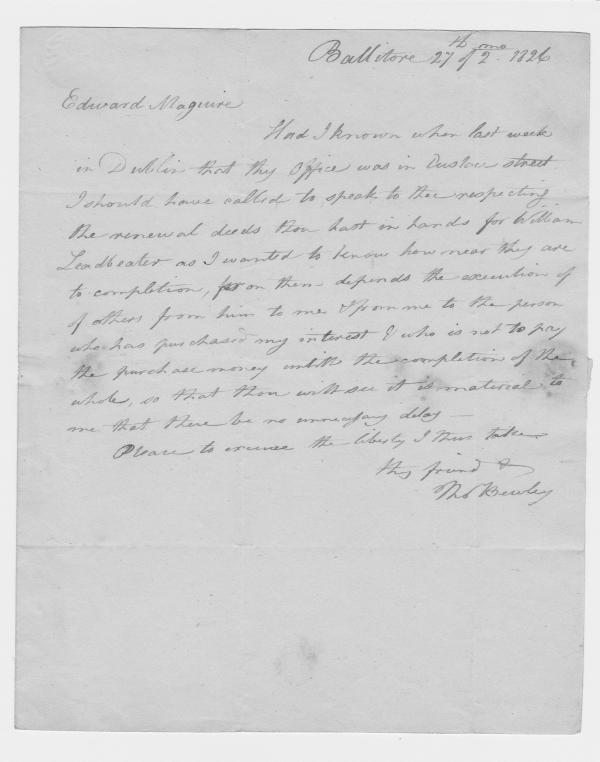 Ballitore 27th of 2mo. 1826
Edward Maguire
Had I known when last week
in Dublin that thy Office was in Eustace street
I should have called to speak to thee respecting
the renewal deeds thou hast in hands for William
Leadbeater as I wanted to know how near they are
to completion, for on them depends the execution of
of others from him to me & from me to the person
who has purchased my interest & who is not to pay
the purchase money untill the completion of the
whole, so that thou wilt see it is material to
me that there be no unnecessary delay —
Please to excuse the liberty I thus take
thy friend &
Thos Bewley